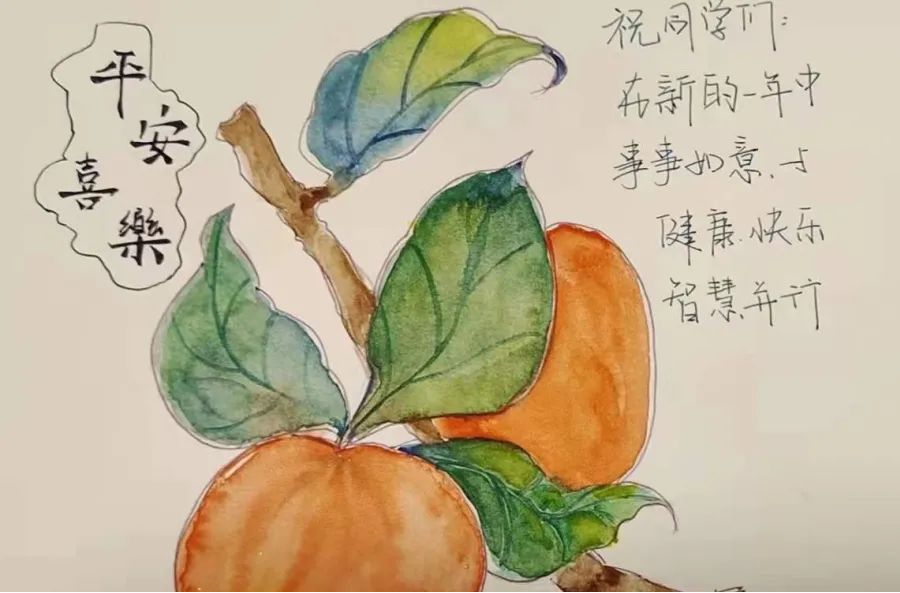 平
安
喜
樂
祝同学们:
在新的一年中
事事如意、
健康.快乐
智慧并行